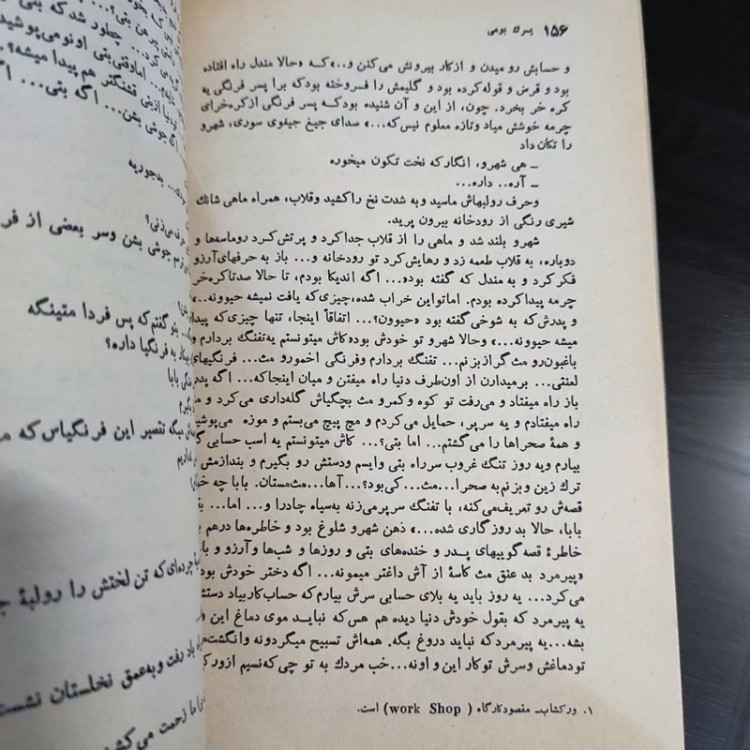 ۱۵۶ پسرك بومی
و حسابش رو میدن و ازکار بیرونش می‌کنن و..» که «حالا مندل راه افتاده
بود و قرض و قوله کرده بود و گلیمش را فروخته بود که برا پسر فرنگی یه
کره خر بخرد. چون، از این و آن شنیده بود که پسر فرنگی از کره خرای
چرمه خوشش میاد و تازه معلوم نیس که...» صدای جیغ جیغوی سوری، شهرو
را تکان داد
ــ هی شهرو، انگار که نخت تکون میخوره
ــ آره.. داره...
و حرف رو لبهاش ماسید و به شدت نخ را کشید و قلاب، همراه ماهی شانك
شیری رنگی از رودخانه بیرون پرید.
شهرو بلند شد و ماهی را از قلاب جدا کرد و پرتش کرد رو ماسه‌ها و
دوباره، به قلاب طعمه زد و رهایش کرد تو رودخانه و... باز به حرفهای آرزو
فکر کرد و به مندل که گفته بود «... اگه اندیکا بودم، تا حالا صدتا کره خر
چرمه پیدا کرده بودم. اما تو این خراب شده، چیزی که یافت نمیشه حیوونه..»
و پدرش که به شوخی گفته بود «حیوون؟... اتفاقاً اینجا، تنها چیزی که پیدا
میشه حیوونه...» و حالا شهرو تو خودش بود «کاش میتونستم یه تفنگ بردارم و
باغبون رو مث گراز بزنم... تفنگ بردارم و فرنگی اخمو رو مث... فرنگیهای
لعنتی... برمیدارن از اون طرف دنیا راه میفتن و میان اینجا که... اگه پدرم
باز راه میفتاد و می‌رفت تو کوه و کمر و مث بچگیاش گله‌داری می‌کرد و م
راه میفتادم و یه سرپر، حمایل می‌کردم و مچ پیچ می‌بستم و موزه می‌پوشید
و همهٔ صحراها را می‌گشتم... اما بتی؟... کاش میتونستم یه اسب حسابی گ
بیارم و یه روز تنگ غروب سر راه بتی وایسم و دستش رو بگیرم و بندازمش
ترك زین و بزنم به صحرا... مث... کی بود؟... آها... مث مستان. بابا چه خو
قصه‌ش رو تعریف می‌کنه، با تفنگ سرپر می‌زنه به سیاه چادرا و... اما... بقو
بابا، حالا بد روزگاری شده...» ذهن شهرو شلوغ بود و خاطره‌ها درهم ب
خاطرهٔ قصه گوییهای پدر و خنده‌های بتی و روزها و شب‌ها و آرزو و با
«پیرمرد بد عنق مث کاسهٔ از آش داغتر میمونه... اگه دختر خودش بود
می‌کرد... یه روز باید یه بلای حسابی سرش بیارم که حساب کار بیاد دستش
یه پیرمرد که بقول خودش دنیا دیده هم هس که نباید موی دماغ این و
بشه... یه پیرمرد که نباید دروغ بگه. همه‌اش تسبیح میگردونه و انگشت
تو دماغش و سرش تو کار این و اونه... خب مردك به تو چی که نسیم از ورک
۱. ورکشاب ــ مقصود کارگاه (work Shop) است.
بدجوریه
حرف می‌زنی؟
جوشی بشن و سر بعضی از فر
بتو گفتم که پس فردا متینگه
بیکار یه فرنگیا داره؟
بابا
میگه تقصیر این فرنگیاس که م
چرده‌ای که تن لختش را رو لبهٔ ج
یاد رفت و به عمق نخلستان نشست
ما زحمت می‌کش